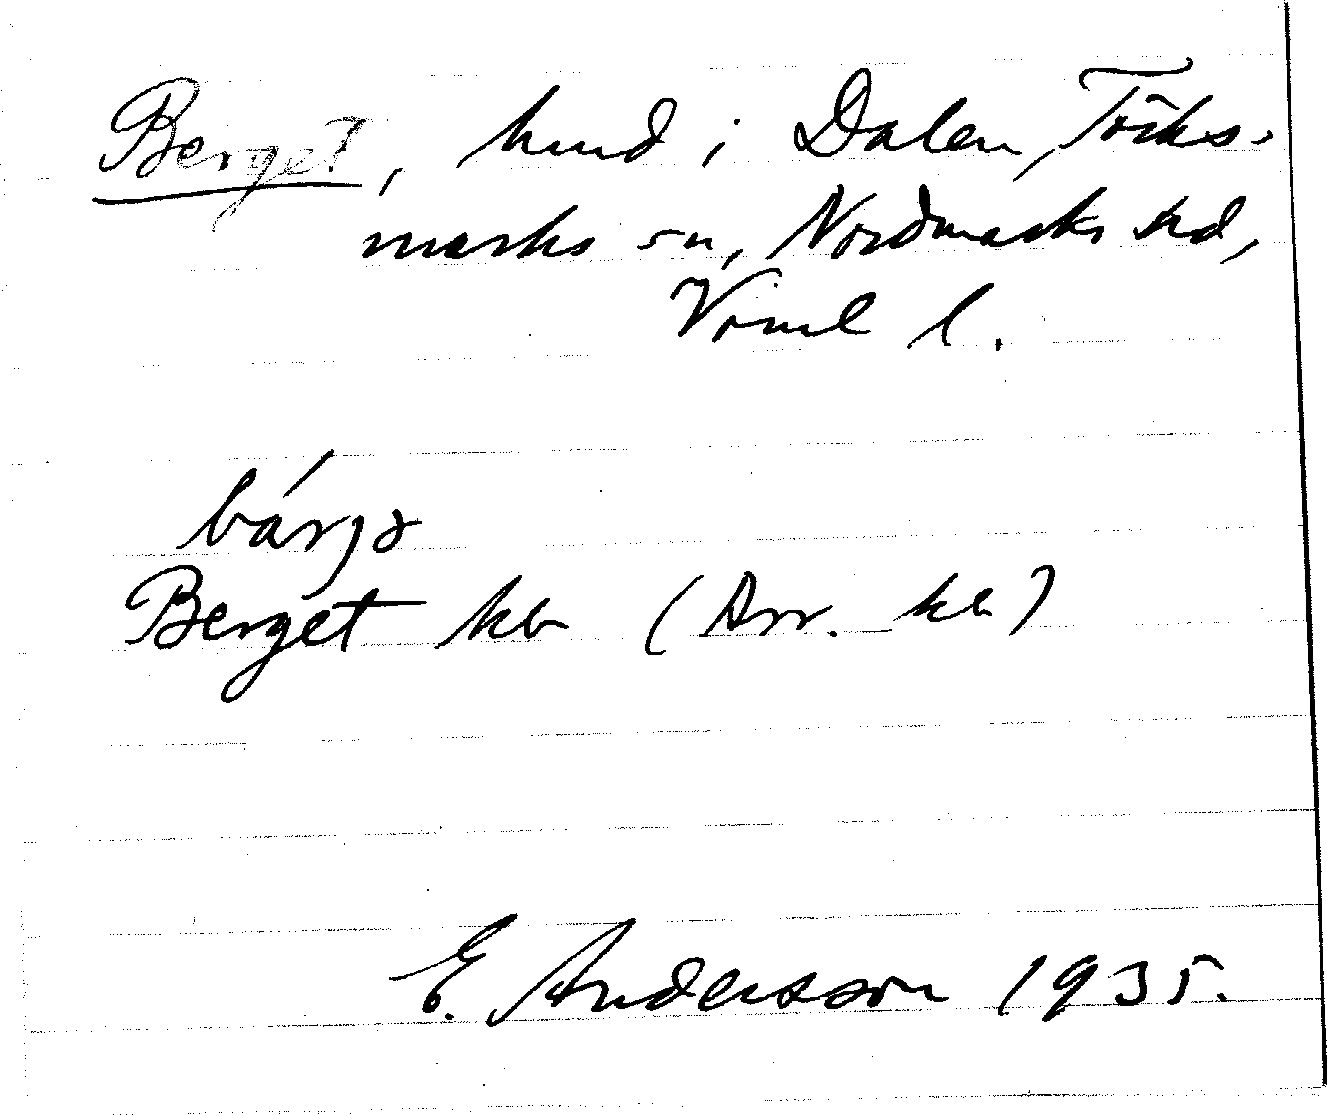 Berget, hmd i Dalen, Töcks-
marks sn, Nordmarks hd,
Vrml l.
bárjə
Berget kb (Arr. kb)
E. Andersson 1935.